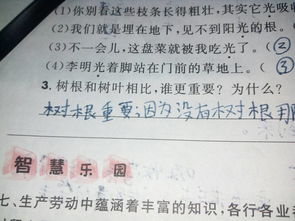 (1)你别看这些枝条长得粗壮,其实它光吸
(2)我们就是埋在地下,见不到阳光的根。(
(3)不一会儿,这盘菜就被我吃光了。(②
(4)李明光着脚站在门前的草地上。(③
3. 树根和树叶相比,谁更重要?为什么?
树根重要,因为没有树根用
智慧乐园
七、生产劳动中蕴涵着丰富的知识,各行各业